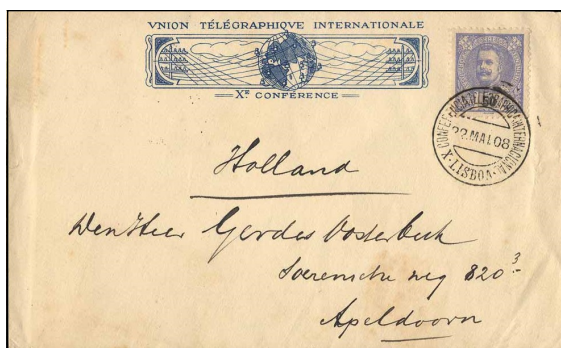 VNION TÉLÉGRAPHIQVE INTERNATIONALE
XE CONFÉRENCE
X CONFER TELEGRAPHICA INTERNACIONAL
22 MAI.08
LISBOA
Holland
Den Heer Gerdes Oosterbeek
Soerensche weg 820³
Apeldoorn